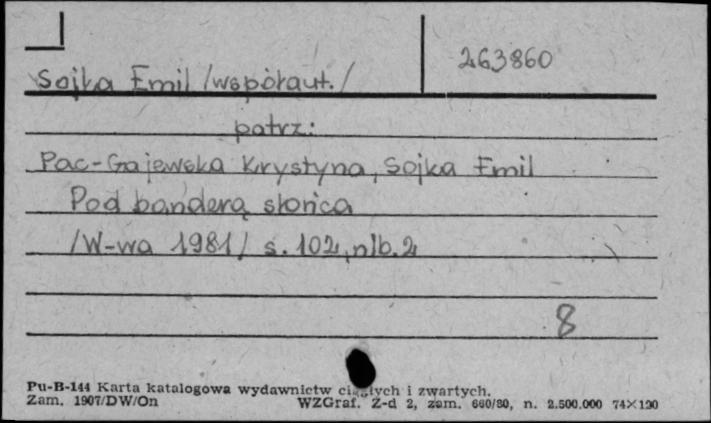 263860
Sojka Emil /współaut./
patrz:
Pac-Gajewska Krystyna, Sojka Emil
Pod banderą słońca
/W-wa 1981/ s. 102, nlb. 2
8
Pu-B-144 Karta katalogowa wydawnictw ciągłych i zwartych.
Zam. 1907/DW/On WZGraf. Z-d 2, zam. 660/80, n. 2.500.000 74×120